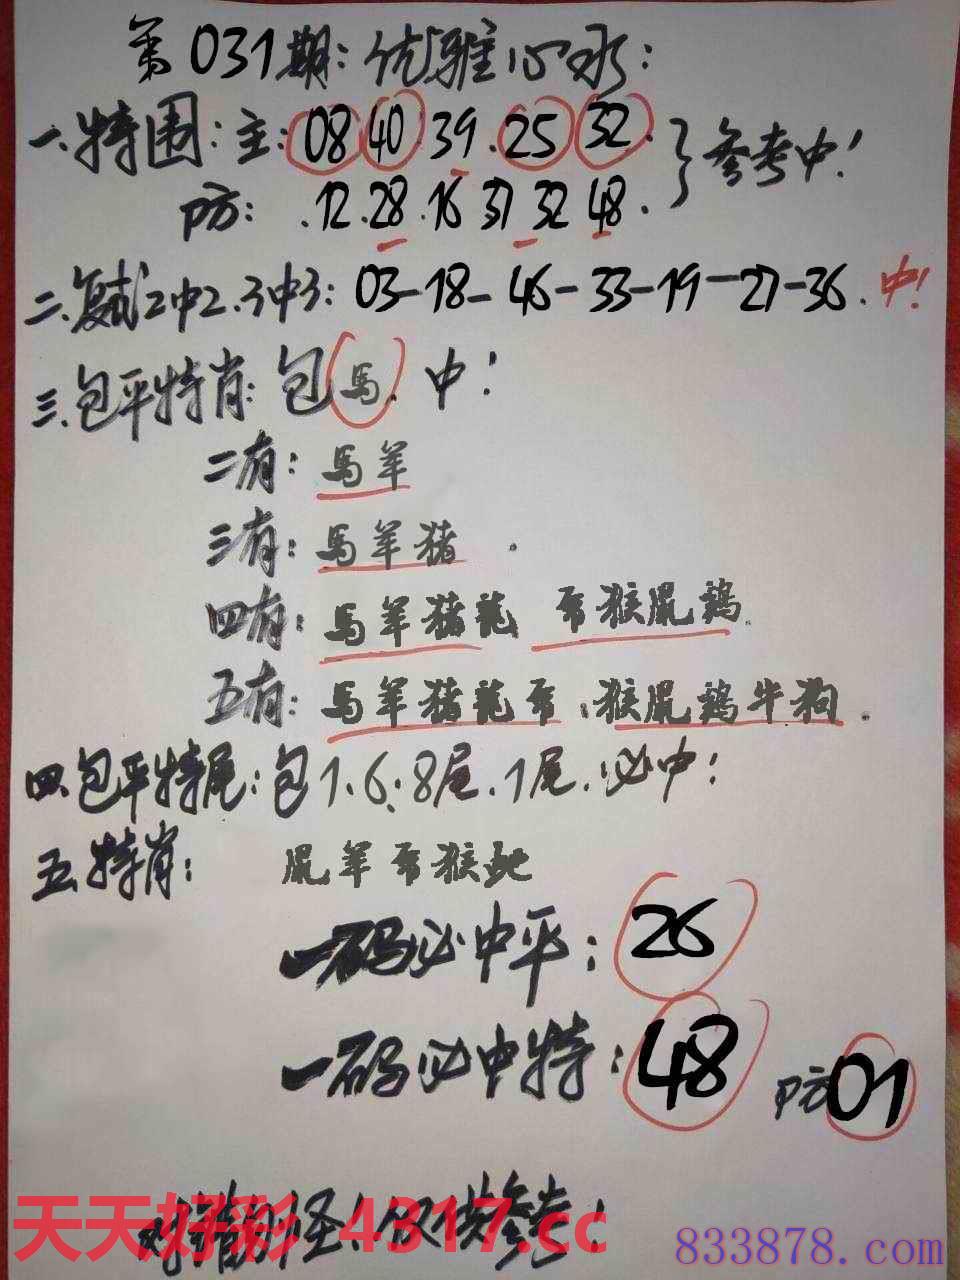 第031期：优雅心水：
一.特围：主：08 40.39.25 32. }参考中！
防：.12.28.16 37 32 48.
二.复式2中2.3中3：03-18-46-33-19-27-36.中！
三.包平特肖：包馬.中！
二有：馬羊
三有：馬羊猪.
四有：馬羊猪龍 猴鼠鷄.
五有：馬羊猪龍 .猴鼠鷄牛狗.
四.包平特尾：包1.6.8尾.1尾.必中！
五.特肖： 鼠羊 猴蛇
一码必中平：26
一码必中特：48 防01
对错勿怪！仅供参考！
天天好彩 4317.cc
833878.com